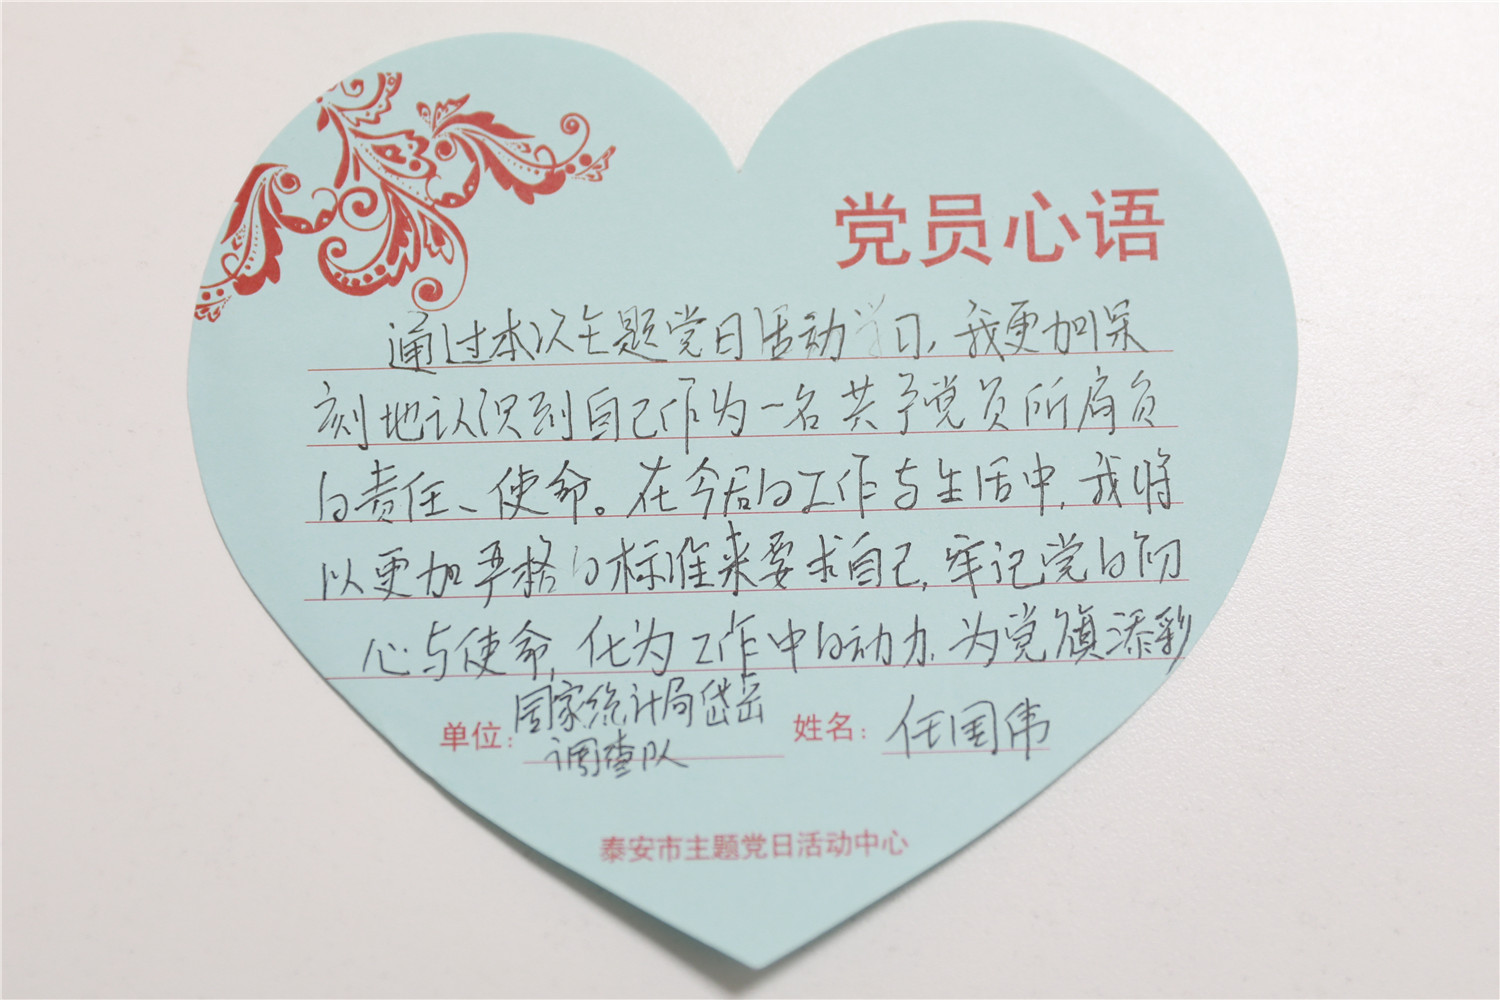 党员心语
通过本次主题党日活动学习,我更加深
刻地认识到自己作为一名共产党员所肩负
的责任、使命。在今后的工作与生活中,我将
以更加严格的标准来要求自己,牢记党的初
心与使命,化为工作中的动力,为党旗添彩
单位:国家统计局岱岳 姓名:任国伟
调查队
泰安市主题党日活动中心